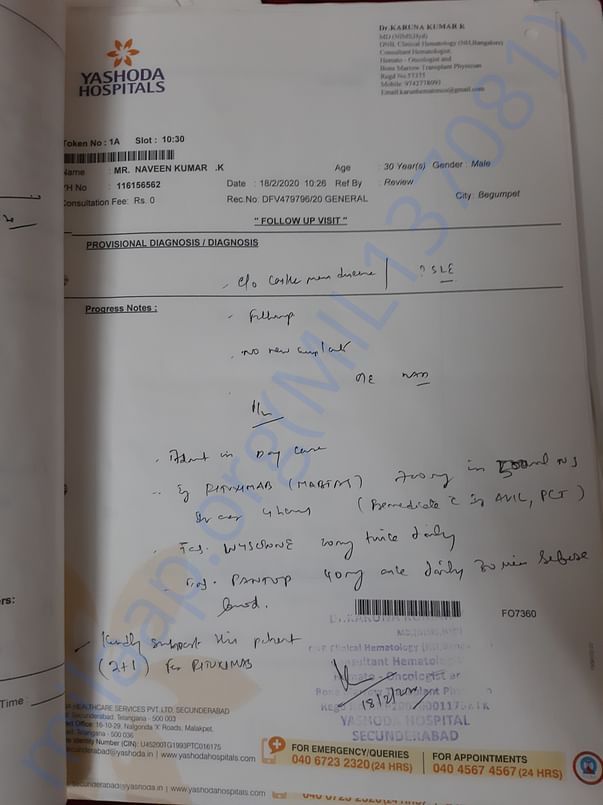 YASHODA
HOSPITALS
Dr.KARUNA KUMAR K
MD (NIMS,Hyd)
DNB, Clinical Hematology (NH,Bangalore)
Consultant Hematologist,
Hemato - Oncologist and
Bone Marrow Transplant Physician
Regd No.57375
Mobile
Token No : 1A Slot : 10:30
Name : MR. NAVEEN KUMAR .K Age : 30 Year(s) Gender : Male
YH No : 116156562 Date : 18/2/2020 10:26 Ref By : Review
Consultation Fee: Rs. 0 Rec.No: DFV479796/20 GENERAL City: Begumpet
" FOLLOW UP VISIT "
PROVISIONAL DIAGNOSIS / DIAGNOSIS
c/o disease ? SLE
Progress Notes :
Followup
No new
O/E NAD
Admit in Day care
RITUXIMAB in NS
over 4 hours (Premedicate c AVIL, PCT)
Tab. WYSOLONE 20mg twice daily
Tab. PANTOP 40mg once daily 30 min before
food.
FO7360
Kindly support this patient
(2+1) for RITUXIMAB
Dr.KARUNA KUMAR
Clinical Hematology
Consultant Hematolo
- Oncologist an
18/2/20
YASHODA HOSPITAL
SECUNDERABAD
HEALTHCARE SERVICES PVT. LTD, SECUNDERABAD
Secunderabad. Telangana - 500 003
Office: 16-10-29, Nalgonda 'X' Roads, Malakpet,
Telangana - 500 036
Identity Number (CIN): U45200TG1993PTC016175
secunderabad@yashoda.in | www.yashodahospitals.com
FOR EMERGENCY/QUERIES
040 6723 2320 (24 HRS)
FOR APPOINTMENTS
040 4567 4567 (24 HRS)
secunderabad@yashoda.in | www.yashodahospitals.com
ers:
Time
milaap.org(MIL137081)